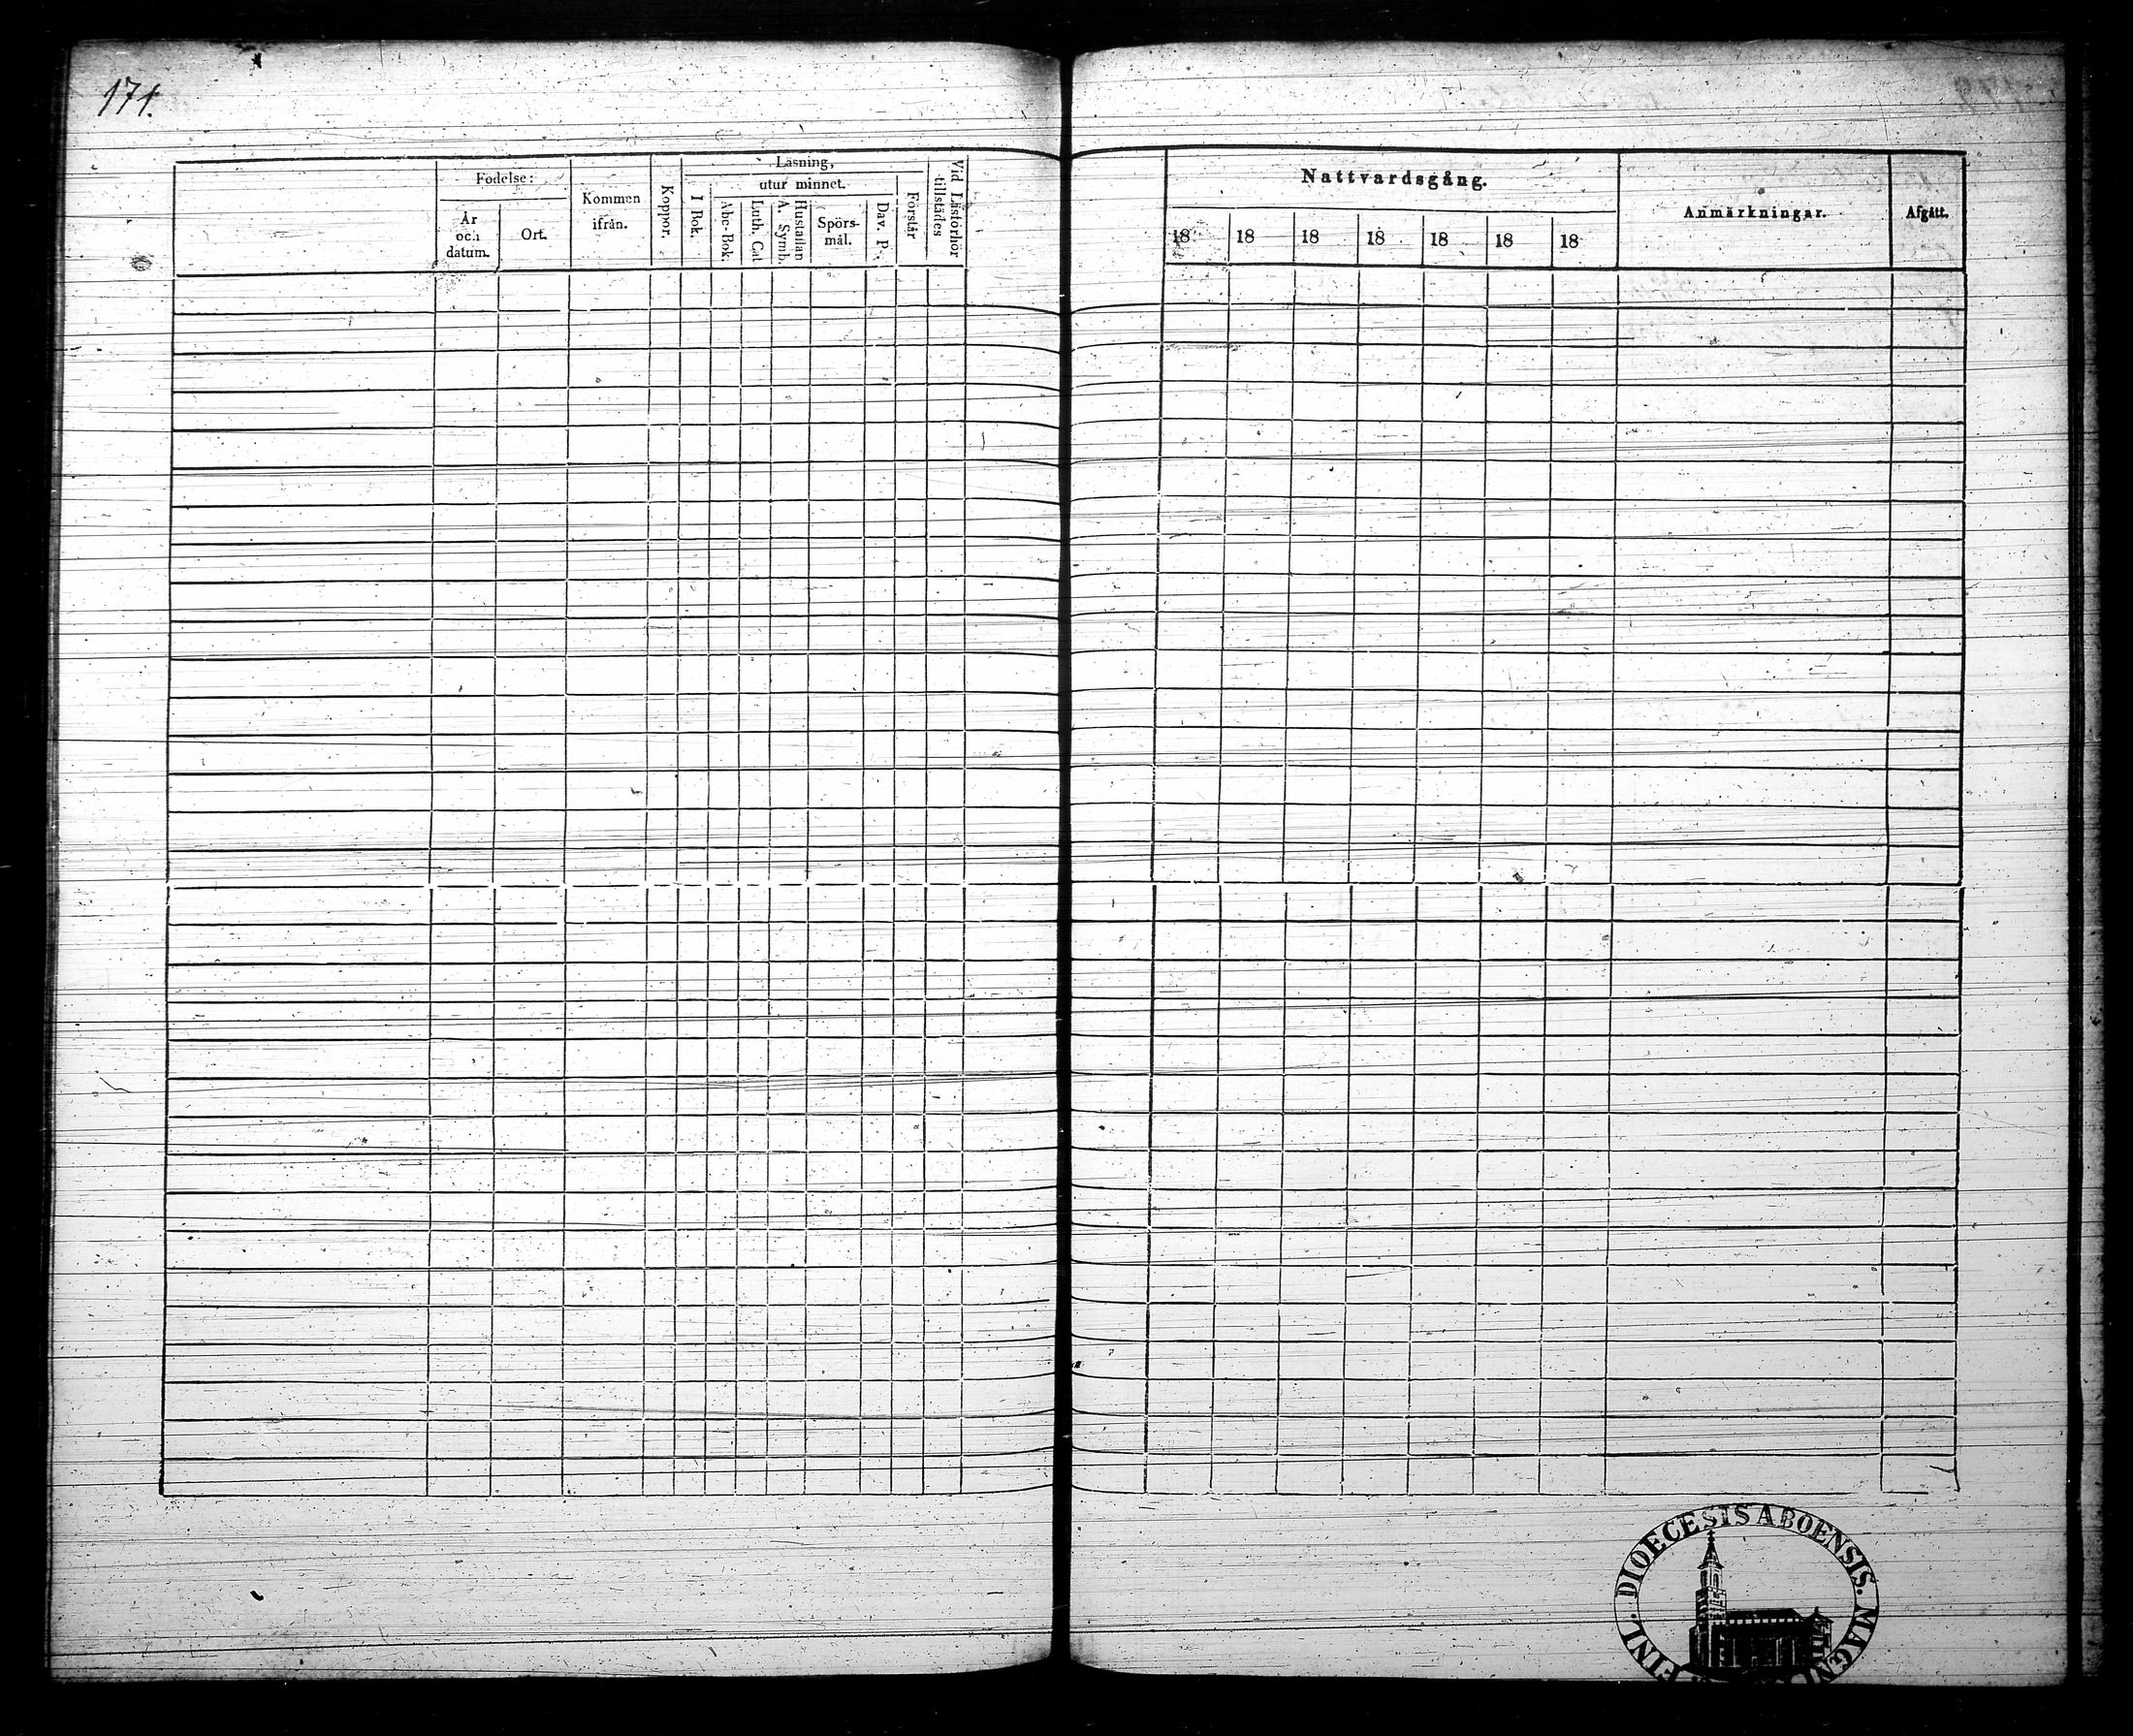 171.
Födelse:
År
och
datum.
Ort.
Kommen
ifrån.
Koppor.
Läsning,
utur minnet.
I Bok.
Abc-Bok.
Luth. Cat.
Hustaflan
A. Symb.
Spörs-
mål.
Dav. P.
Förstår
Vid Läsförhör
tillstädes
Nattvardsgång.
18 18 18 18 18 18 18
Anmärkningar.
Afgått.
FINL. DIOECESIS ABOENSIS. MAGNI